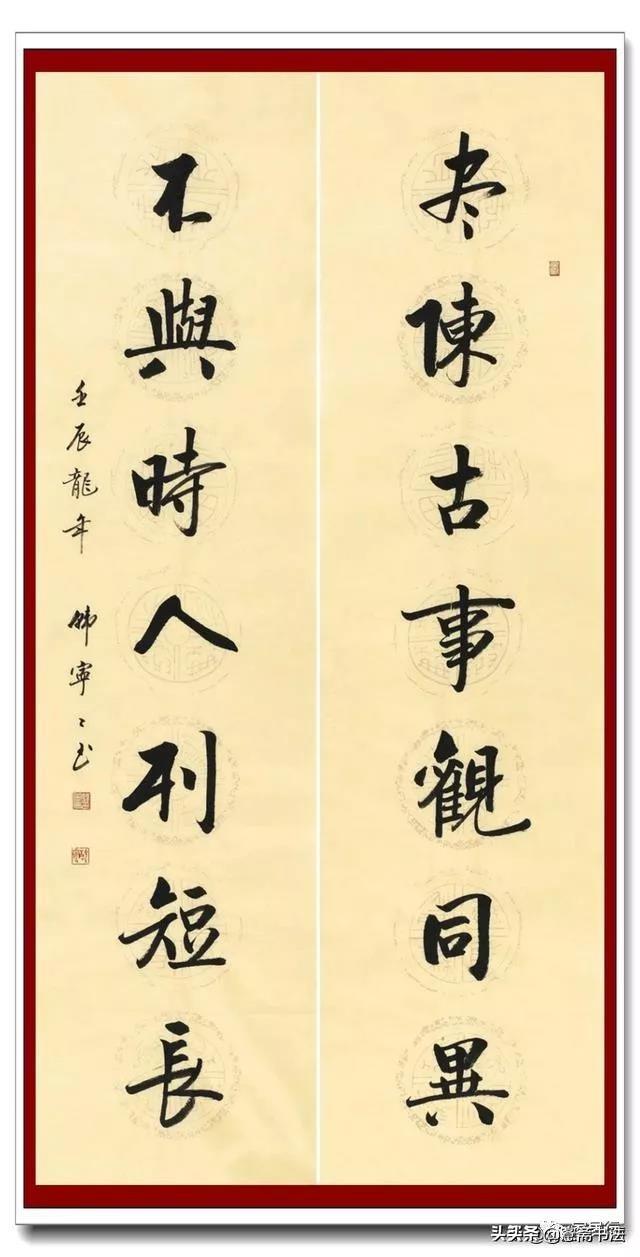 尽陳古事觀同異
不與時人刊短長
壬辰龍年
寧〻书
头条
斋书法